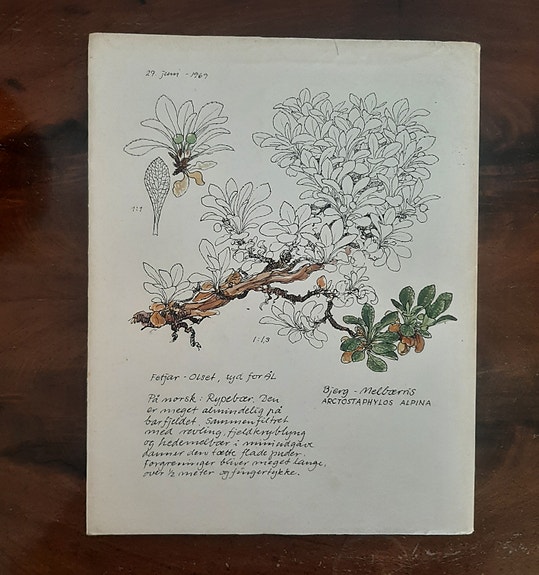 27. Juni - 1969
1:1
1:1,3
Fetjar - Olset, syd for ÅL
På norsk: Rypebær. Den
er meget almindelig på
barfjeldet. Sammenfiltret
med revling, fjeldkryblyng
og hedemelbær i miniudgave
danner den tætte flade puder.
Forgreninger bliver meget lange,
over ½ meter og fingertykke.
Bjerg - Melbærris
ARCTOSTAPHYLOS ALPINA